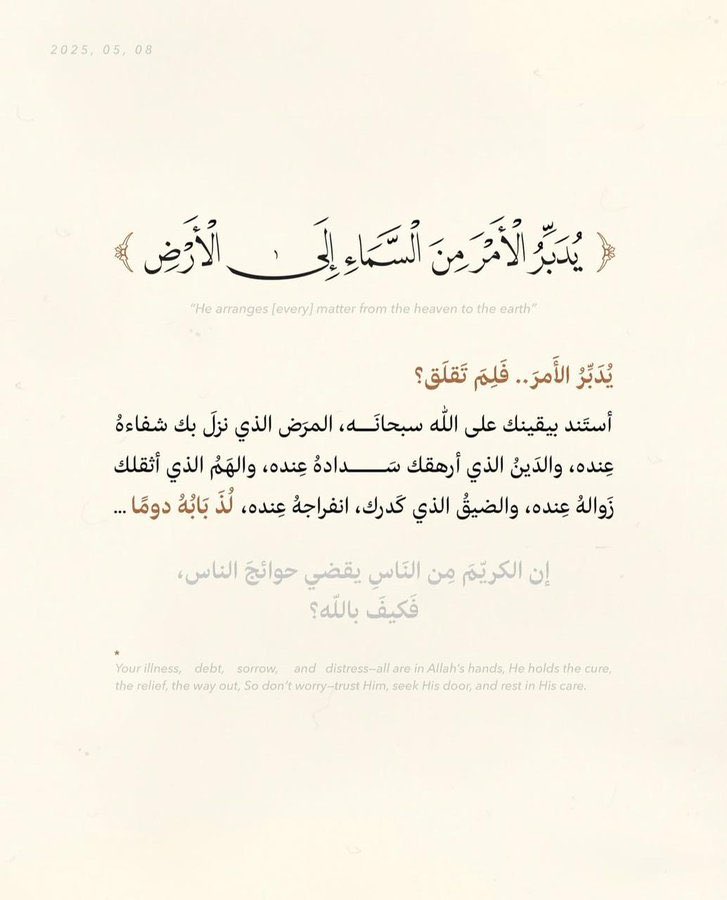 2025, 05, 08
﴿يُدَبِّرُ الْأَمْرَ مِنَ السَّمَاءِ إِلَى الْأَرْضِ﴾
“He arranges [every] matter from the heaven to the earth”
يُدَبِّرُ الأَمرَ.. فَلِمَ تَقلَق؟
أستَند بيقينك على الله سبحانَـــه، المرَض الذي نزلَ بك شفاءهُ
عِنده، والدَينُ الذي أرهقك سَـــــدادهُ عِنده، والهَمُ الذي أثقلك
زَوالهُ عِنده، والضيقُ الذي كَدرك، انفراجهُ عِنده، لُذَ بَابُهُ دومًا ...
إن الكريّمَ مِن النَاسِ يقضي حوائجَ الناس،
فَكيفَ باللّه؟
*
Your illness, debt, sorrow, and distress—all are in Allah's hands, He holds the cure,
the relief, the way out, So don't worry—trust Him, seek His door, and rest in His care.